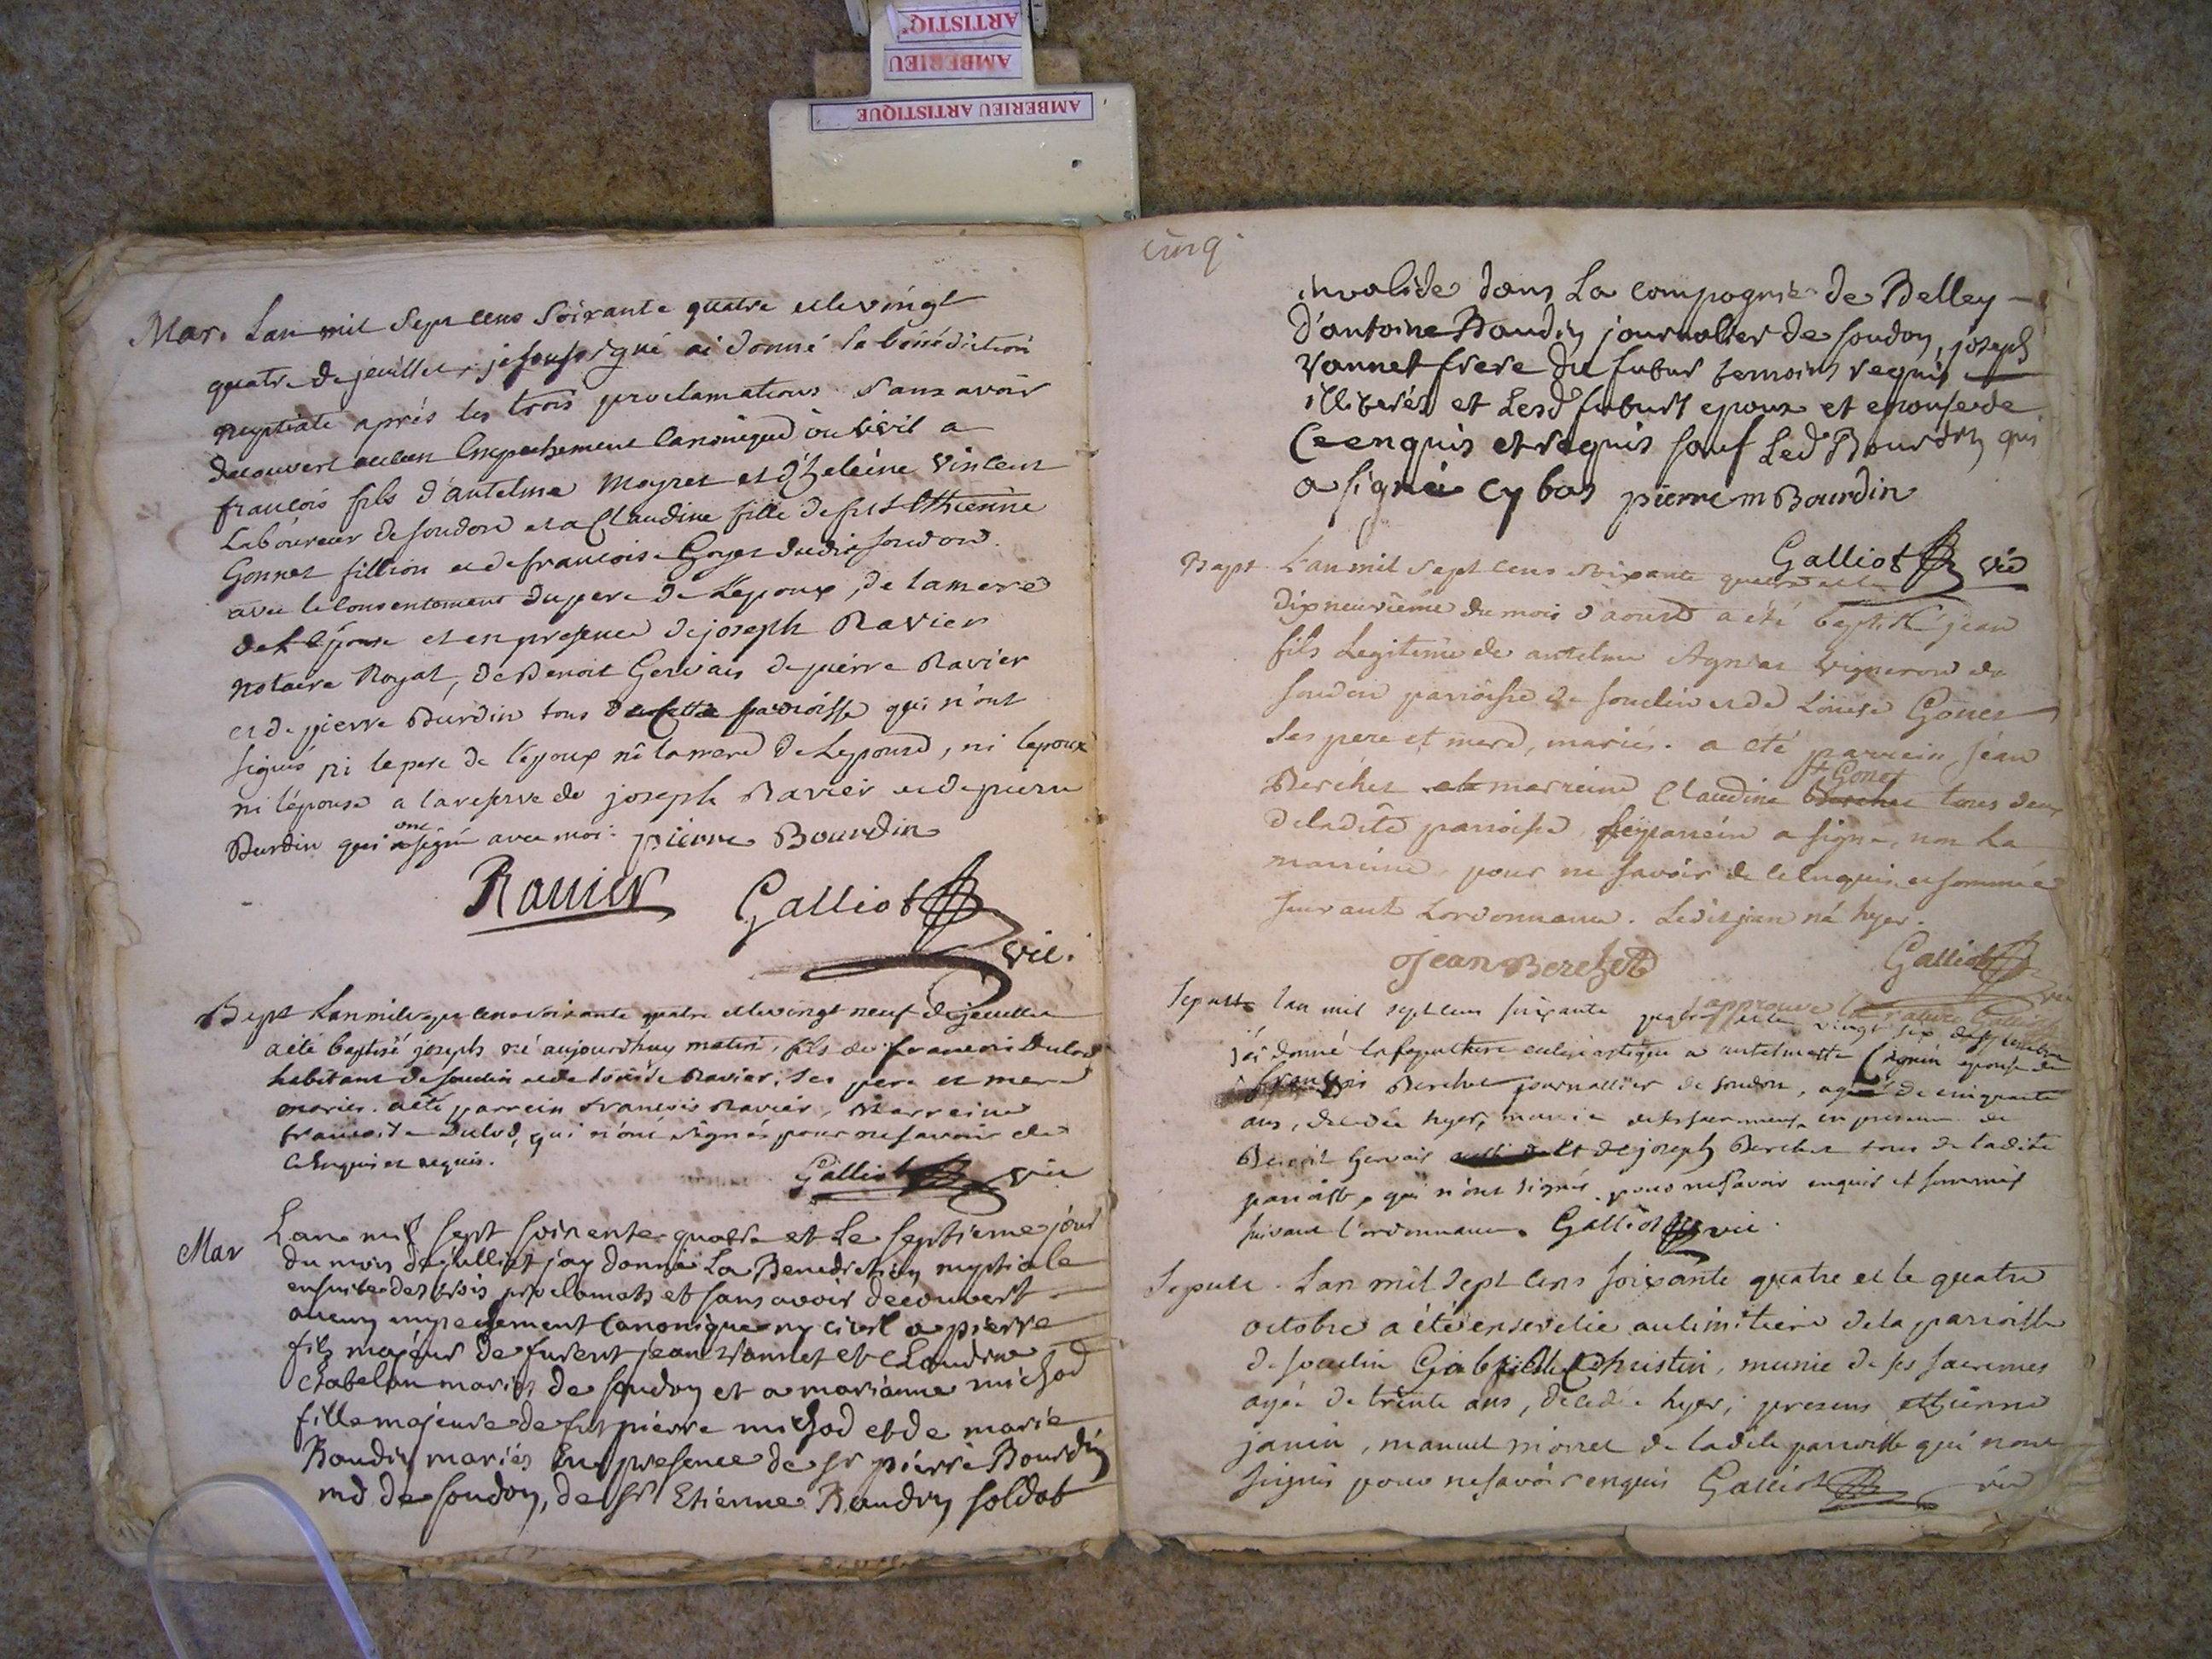 ARTISTIQ
AMBERIEU
AMBERIEU ARTISTIQUE
Mar. Lan mil Sept cens Soixante quatre et le vingt
quatre de juillet, je soussigné ai donné la bénédiction
nuptiale aprés les trois proclamations sans avoir
decouvert aucun Empechement Canonique ou Civil a
francois fils d'antelme Meyret et d'heleine Vincent
Laboureur de soudon et a Claudine fille de fut Ethienne
Gonnet fillion et de francoise Goyet dudit soudon
avec le Consentement du pere de L'epoux, de la mere
de l'épouse et en presence de joseph Ravier
notaire Royal, de Benoit Gervais de pierre Ravier
et de pierre Burdin tous de cette parroisse qui n'ont
signés ni le pere de l'epoux ni la mere de Lepouse, ni lepoux
ni lépouse a la reserve de joseph Ravier et de pierre
Burdin qui ont signé avec moi. pierre Bourdin
Ravier Galliot
vic.
Bapt Lan mil sept cens soixante quatre et le vingt neuf de juillet
a été baptisé joseph né aujourdhuy matin, fils de francois Dulod
habitant de soudon et de Louise Ravier, ses pere et mere
mariés. a été parrein francois Ravier, Marreine
francoise Dulod, qui n'ont signés pour ne savoir de
ce Enquis et requis.
Galliot vic
Mar Lan mil sept soixente quatre et Le septieme jour
du mois de julliet jay donné La Benediction nuptiale
ensuite des trois proclamats et sans avoir decouvert
aucun empechement Canonique ny civil a pierre
fils majeur de furent jean vannet et Claudine
Chabelan mariés de soudon et a marianne michod
fille majeure de fut pierre michod et de marie
Baudin mariés En presence de sr pierre Bourdin
md de soudon, de sr Etienne Baudin soldat
cinq.
invalide dans La compagnie de Belley
d'antoine Baudin journalier de soudon, joseph
vannet frere du futur temoins requis
illiterés et Lesd futurs epoux et epouse de
Ce enquis et requis sauf Led Bourdin qui
a signé cy bas pierre m Bourdin
Galliot vic
Bapt. L'an mil sept cens soixante quatre et le
dix neuvieme du mois d'aoust a été baptisé jean
fils Legitime de antelme Agniat vigneron de
soudon parroisse de souclin et de Louise Gonet
ses pere et mere, mariés. a été parrein, jéan
Berchet et marreine Claudine Berchet tous deux
+ Gonet
de ladite parroisse, le parrein a signé, non La
marreine pour ne savoir de ce Enquis et sommée
suivant Lordonnance. Ledit jean né hyer.
Jean Berchet Galliot
vic
j'approuve la rature
Sepult Lan mil sept cens soixante quatre et le vingt six de septembre
j'ai donné la sepulture eclesiastique a antelmette Cognin epouse de
francois Berchet journallier de soudon, agée de cinquante
ans, decedée hyer, munie de ses sacremens en presence de
Benoit Gervais et de joseph Berchet tous de ladite
parroisse, qui n'ont signés pour ne savoir enquis et sommés
suivant l'ordonnance. Galliot vic.
Sepult. Lan mil sept cens soixante quatre et le quatre
octobre a été ensevelie au cimitiere de la parroisse
de souclin Gabrielle Christin, munie de ses sacremes
agée de trente ans, decedée hyer, presens ethienne
janin, manuel morel de ladite parroisse qui n'ont
signés pour ne savoir enquis Galliot vic